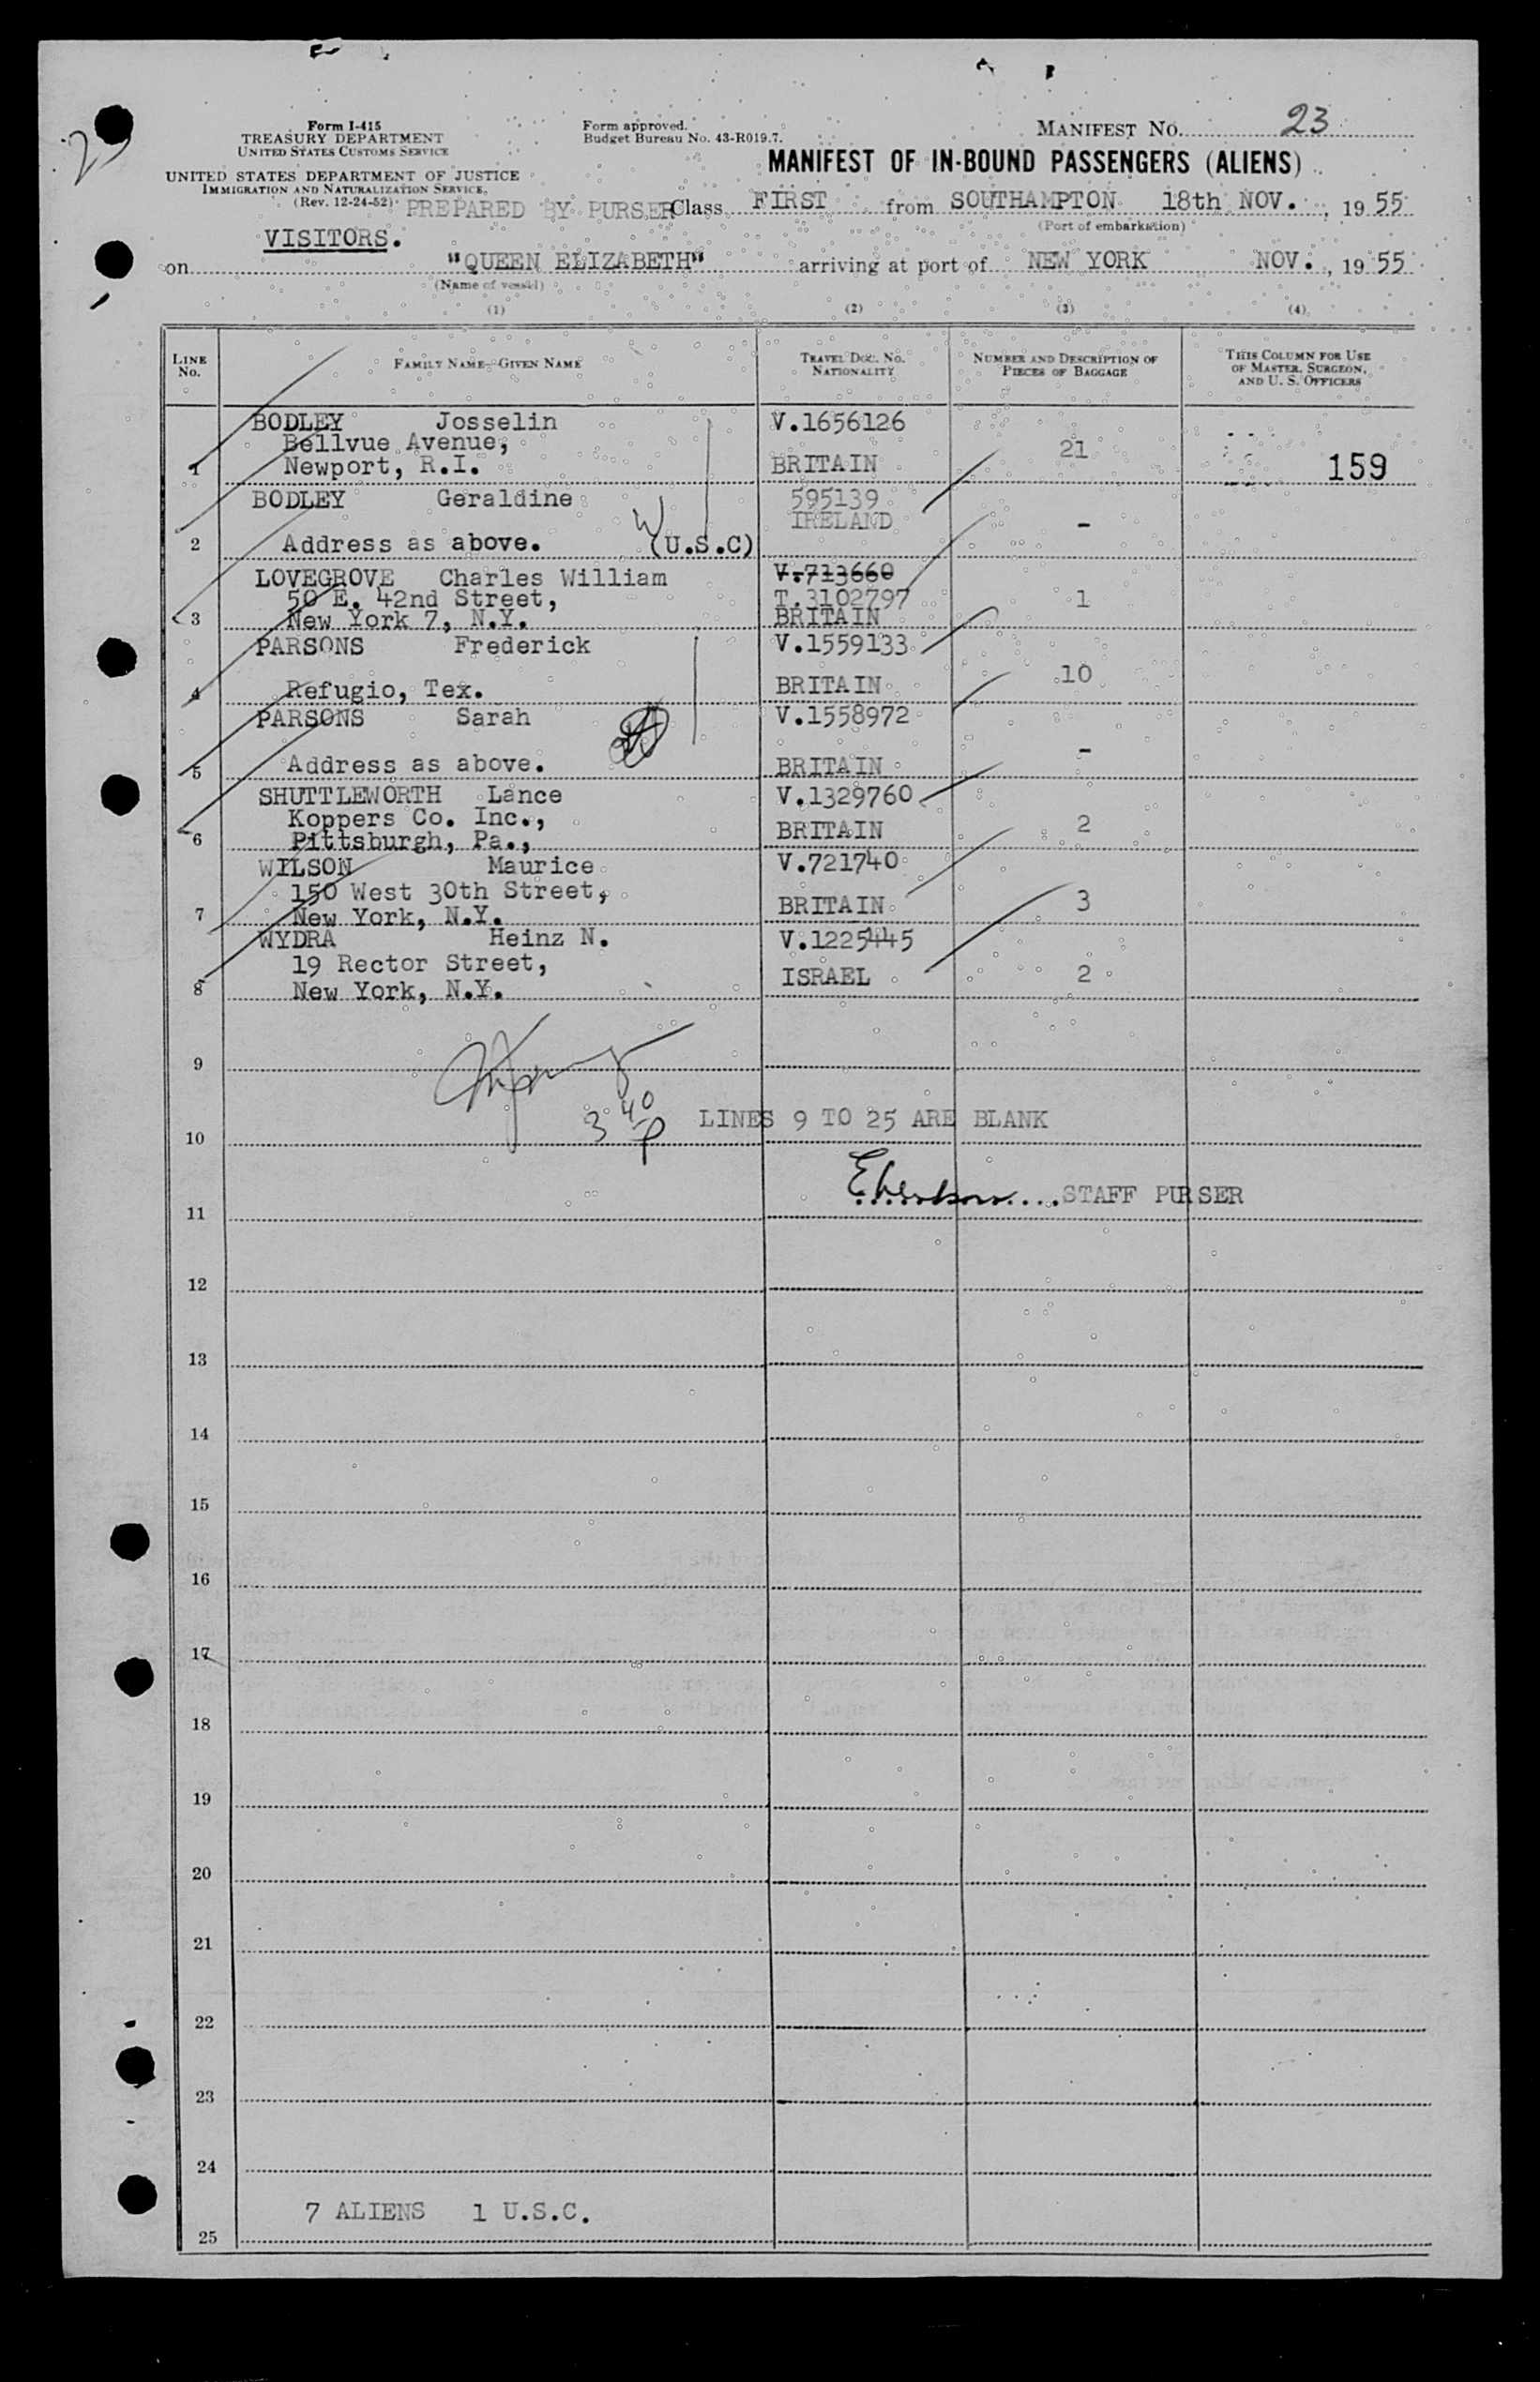 23
Form I-415
TREASURY DEPARTMENT
UNITED STATES CUSTOMS SERVICE
UNITED STATES DEPARTMENT OF JUSTICE
IMMIGRATION AND NATURALIZATION SERVICE
(Rev. 12-24-52)
Form approved.
Budget Bureau No. 43-R019.7.
MANIFEST NO. 23
MANIFEST OF IN-BOUND PASSENGERS (ALIENS)
PREPARED BY PURSER Class FIRST from SOUTHAMPTON 18th NOV. , 19 55
(Port of embarkation)
VISITORS.
on "QUEEN ELIZABETH" arriving at port of NEW YORK NOV. , 19 55
(Name of vessel)
(1) (2) (3) (4)
LINE NO. FAMILY NAME—GIVEN NAME TRAVEL DOC. NO. NATIONALITY NUMBER AND DESCRIPTION OF PIECES OF BAGGAGE THIS COLUMN FOR USE OF MASTER, SURGEON, AND U. S. OFFICERS
BODLEY Josselin V.1656126
Bellvue Avenue, 21
1 Newport, R.I. BRITAIN 159
BODLEY Geraldine 595139
IRELAND -
2 Address as above. W (U.S.C)
LOVEGROVE Charles William V.713660
50 E. 42nd Street, T.3102797 1
3 New York 7, N.Y. BRITAIN
PARSONS Frederick V.1559133
4 Refugio, Tex. BRITAIN 10
PARSONS Sarah V.1558972
5 Address as above. BRITAIN -
SHUTTLEWORTH Lance V.1329760
Koppers Co. Inc., BRITAIN 2
6 Pittsburgh, Pa.,
WILSON Maurice V.721740
150 West 30th Street,
7 New York, N.Y. BRITAIN 3
WYDRA Heinz N. V.1225445
19 Rector Street,
8 New York, N.Y. ISRAEL 2
9
3 40 P
LINES 9 TO 25 ARE BLANK
10
STAFF PURSER
11
12
13
14
15
16
17
18
19
20
21
22
23
24
7 ALIENS 1 U.S.C.
25